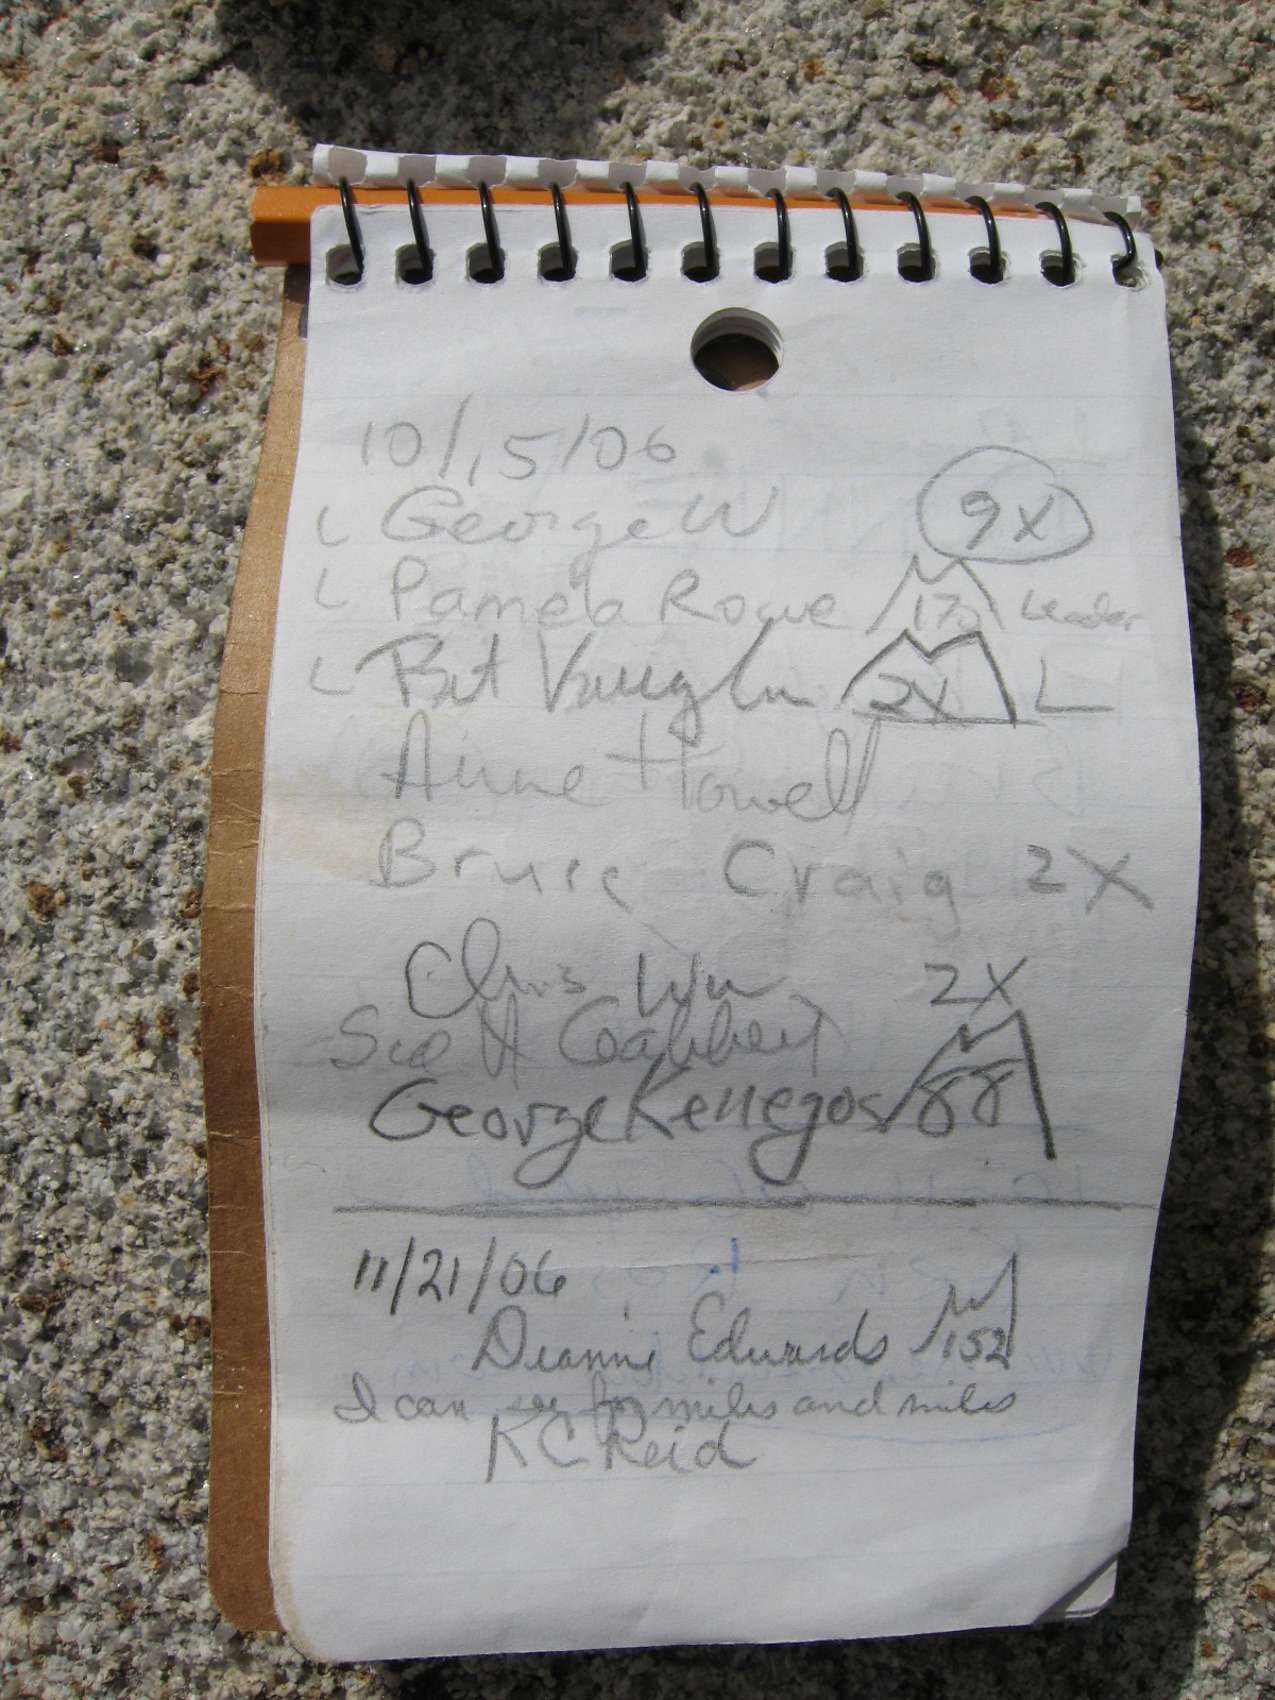 10/15/06
L George W 9X
L Pamela Rowe 173 Leader
L Pat Vaughn 2X L
Anne Howell
Bruce Craig 2X
Chris Wu 2X
Gabbert
George Kenegos 88
11/21/06
Dianne Edwards 152
I can see for miles and miles
KC Reid